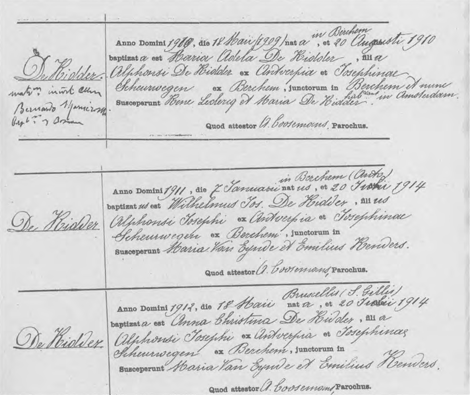 in Berchem
Anno Domini 1910, die 18 Maii (1909) nat a, et 20 Augusti 1910
De Ridder
baptizata est Maria Adela De Ridder, filia
Alphonsi De Ridder ex Antverpia et Josephinae
Scheurwegen ex Berchem, junctorum in Berchem et nunc
in Amsterdam.
Susceperunt Leclercq et Maria De Ridder
Quod attestor A. Coosemans, Parochus.
in Berchem
Anno Domini 1911, die 7 Januarii natus, et 20 1914
De Ridder
baptizatus est Wilhelmus Jos. De Ridder, filius
Alphonsi Josephi ex Antverpia et Josephinae
Scheurwegen ex Berchem, junctorum in
Susceperunt Maria Van Eynde et Emilius Kenders.
Quod attestor A. Coosemans, Parochus.
Bruxellis (S. Gillis)
Anno Domini 1912, die 18 Maii nata, et 20 1914
De Ridder.
baptizata est Anna Christina De Ridder, filia
Alphonsi Josephi ex Antverpia et Josephinae
Scheurwegen ex Berchem, junctorum in
Susceperunt Maria Van Eynde et Emilius Kenders.
Quod attestor A. Coosemans, Parochus.